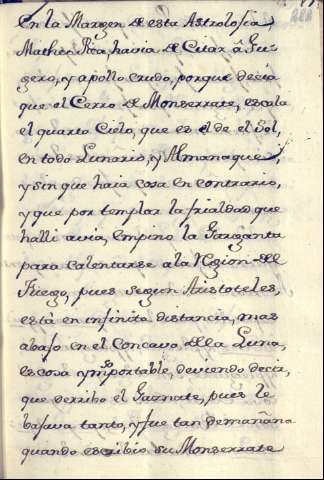 En la Margen de esta Astrologia,
Matheo Rca, havia de Citar â Su-
gero, y apollo crudo, porque decia
que el Cerro de Monserrate, escala
el quarto Cielo, que es el de el Sol,
en todo Lunario, y Almanaque,
y sin que haia cosa en contrario,
y que por templar la frialdad que
halli avia, empino la Garganta
para calentarse a la Region del
Fuego, pues segun Aristoteles,
está en infinita distancia, mas
abajo en el Concavo de la Luna,
es cosa ymsoportable, deviendo decir,
que derribo el Garnate, pues le
bajava tanto, y fue tan demañana
quando escribio su Monserrate